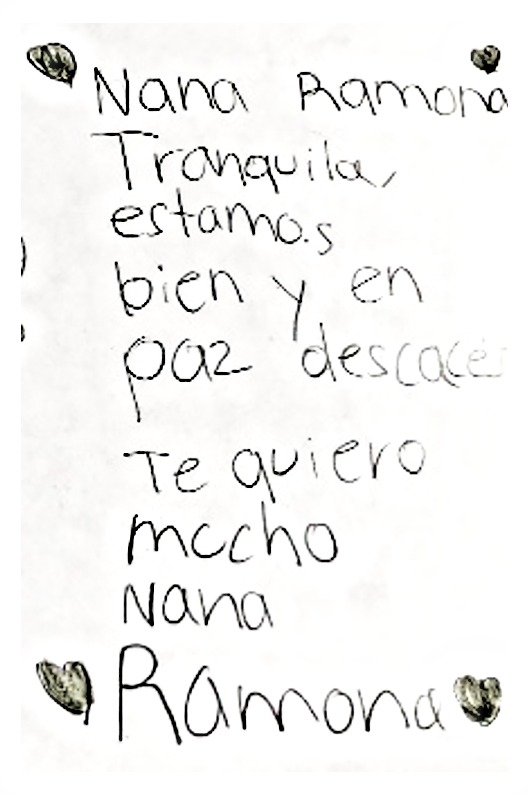 Nana Ramona
Tranquila,
estamos
bien y en
paz
Te quiero
mucho
Nana
Ramona